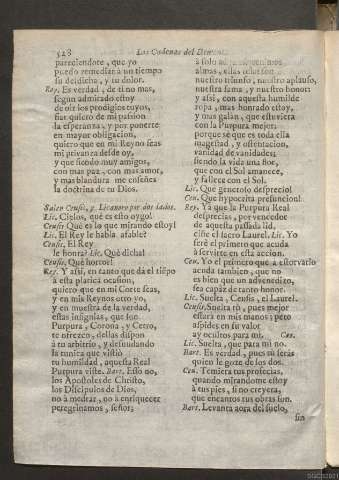 528
Las Cadenas del Demonio.
pareciendote, que yo
puedo remediar à un tiempo
su desdicha, y tu dolor.
Rey. Es verdad, de ti no mas,
segun admirado estoy
de oir los prodigios tuyos,
fiar quiero de mi passion
la esperança, y por ponerte
en mayor obligacion,
quiero que en mi Reyno seas
mi privança desde oy,
y que siendo muy amigos,
con mas paz, con mas amor,
y mas blandura me enseñes
la doctrina de tu Dios.
Salen Ceusis, y Licanoro por dos lados.
Lic. Cielos, què es esto oygo!
Ceusis Què es lo que mirando estoy!
Lic. El Rey le habla afable?
Ceusis. El Rey
le honra? Lic. Què dicha!
Ceusis. Què horror!
Rey. Y assi, en tanto que dà el tiẽpo
à esta platica ocasion,
quiero que en mi Corte seas,
y en mis Reynos otro yo,
y en muestra de la verdad,
estas insignias, que son
Purpura, Corona, y Cetro,
te ofrezco, dellas dispon
à tu arbitrio, y desnudando
la tunica que vistiò
tu humildad, aquesta Real
Purpura viste. Bart. Esso no,
los Apostoles de Christo,
los Discipulos de Dios,
no à medrar, no à enriquecer
peregrinamos, señor;
à solo adquirir venimos
almas, ellas solas son
nuestro triunfo, nuestro aplauso,
nuestra fama, y nuestro honor:
y assi, con aquesta humilde
ropa, mas honrado estoy,
y mas galan, que estuviera
con la Purpura mejor:
porque sè que es toda essa
magestad, y ostentacion,
vanidad de vanidades,
siendo la vida una flor,
que con el Sol amanece,
y fallece con el Sol.
Lic. Què generoso desprecio!
Cen. Què hypocrita presuncion!
Rey. Yà que la Purpura Real
desprecias, por vencedor
de aquesta passada lid,
ciñe el sacro Laurel. Lic. Yo
serè el primero que acuda
à servirte en esta accion.
Cen. Yo el primero que à estorvarlo
acuda tambien, que no
es bien que un advenedizo,
sea capàz de tanto honor.
Lic. Suelta, Ceusis, el Laurel.
Ceusis. Suelta tù, pues mejor
estarà en mis manos; pero
aspides en su valor
ay ocultos para mi. Cae.
Lic. Suelta, que para mi no.
Bart. Es verdad, pues tù seràs
quien le goze de los dos.
Cen. Temiera tus profecias,
quando mirandome estoy
à tus pies, si no creyera,
que encantos tus obras son.
Bart. Levanta aora del suelo,
sin